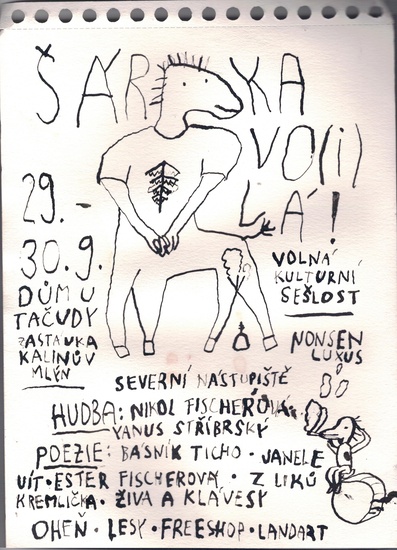 ŠÁRKA
VO(i)
LÁ!
29.-
30.9.
DŮM U
TAČUDY
ZASTÁVKA
KALINŮV
MLÝN
VOLNÁ
KULTURNÍ
SEŠLOST
NONSEN
LUXUS
SEVERNÍ NÁSTUPIŠTĚ
HUDBA: NIKOL FISCHEROVÁ
YANUS STŘÍBRSKÝ
POEZIE: BÁSNÍK TICHO · JANELE
VÍT · ESTER FISCHEROVÁ · Z LIKŮ
KREMLIČKA · ŽIVA A KLÁVESY
OHEŇ · LESY · FREESHOP · LANDART